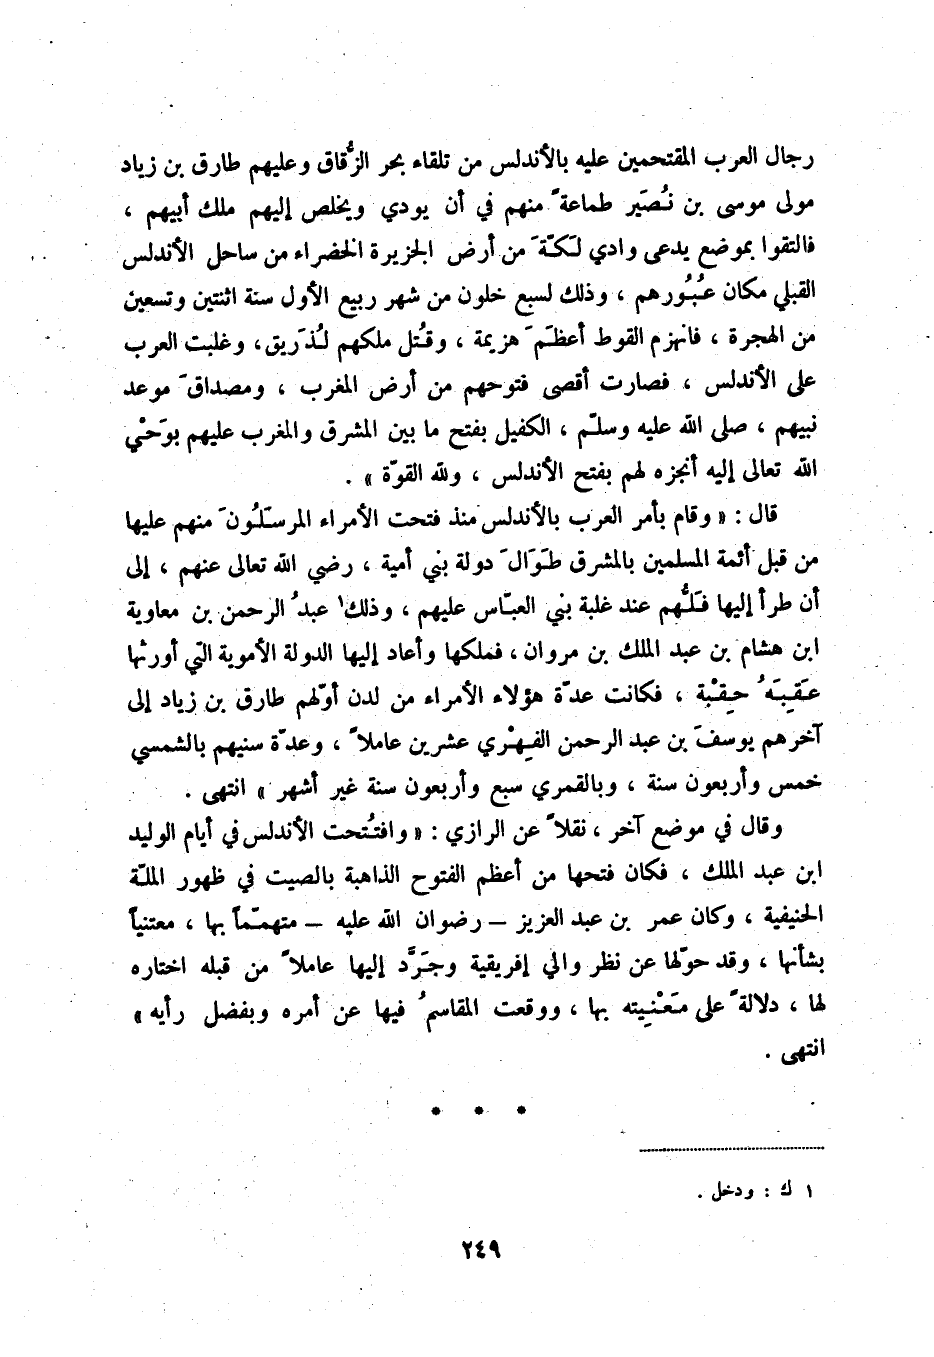 رجال العرب المقتحمين عليه بالأندلس من تلقاء بحر الزُّقاق وعليهم طارق بن زياد
مولى موسى بن نُصَير طماعةً منهم في أن يودي ويخلص إليهم ملك أبيهم ،
فالتقوا بموضع يدعى وادي لَكّةَ من أرض الجزيرة الخضراء من ساحل الأندلس
القبلي مكان عُبُورهم ، وذلك لسبع خلون من شهر ربيع الأول سنة اثنتين وتسعين
من الهجرة ، فانهزم القوط أعظَمَ هزيمة ، وقُتل ملكهم لُذَريق، وغلبت العرب
على الأندلس ، فصارت أقصى فتوحهم من أرض المغرب ، ومصداقَ موعد
نبيهم ، صلى الله عليه وسلّم ، الكفيل بفتح ما بين المشرق والمغرب عليهم بوَحْي
الله تعالى إليه أنجزه لهم بفتح الأندلس ، ولله القوّة » .
قال : « وقام بأمر العرب بالأندلس منذ فتحت الأمراء المرسَلُونَ منهم عليها
من قبل أئمة المسلمين بالمشرق طَوَالَ دولة بني أمية ، رضي الله تعالى عنهم ، إلى
أن طرأ إليها فَلُّهم عند غلبة بني العبّاس عليهم ، وذلك١ عبدُ الرحمن بن معاوية
ابن هشام بن عبد الملك بن مروان ، فملكها وأعاد إليها الدولة الأموية التي أورثها
عَقِبَهُ حِقْبة ، فكانت عدّة هؤلاء الأمراء من لدن أوّلهم طارق بن زياد إلى
آخرهم يوسفَ بن عبد الرحمن الفِهْري عشرين عاملاً ، وعدّة سنيهم بالشمسي
خمس وأربعون سنة ، وبالقمري سبع وأربعون سنة غير أشهر » انتهى .
وقال في موضع آخر ، نقلاً عن الرازي : « وافتُتحت الأندلس في أيام الوليد
ابن عبد الملك ، فكان فتحها من أعظم الفتوح الذاهبة بالصيت في ظهور الملّة
الحنيفية ، وكان عمر بن عبد العزيز – رضوان الله عليه – متهمّماً بها ، معتنياً
بشأنها ، وقد حوّلها عن نظر والي إفريقية وجَرَّد إليها عاملاً من قبله اختاره
لها ، دلالةً على مَعْنِيته بها ، ووقعت المقاسمُ فيها عن أمره وبفضل رأيه »
انتهى .
* * *
١ ك : ودخل .
٢٤٩